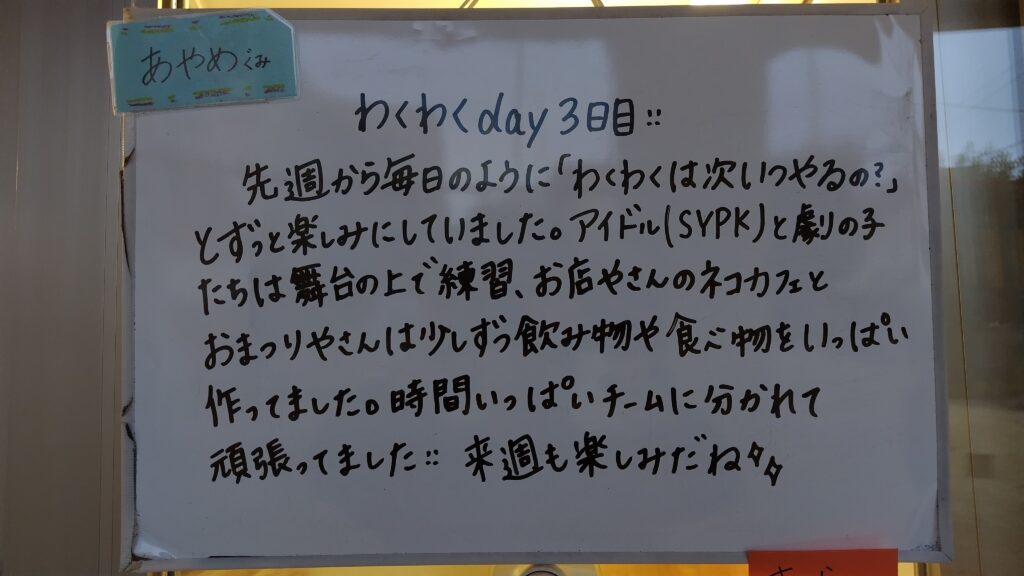 あやめぐみ
わくわくday 3日目::
先週から毎日のように「わくわくは次いつやるの?」
とずっと楽しみにしていました。アイドル(SYPK)と劇の子
たちは舞台の上で練習、お店やさんのネコカフェと
おまつりやさんは少しずつ飲み物や食べ物をいっぱい
作ってました。時間いっぱいチームに分かれて
頑張ってました:: 来週も楽しみだね